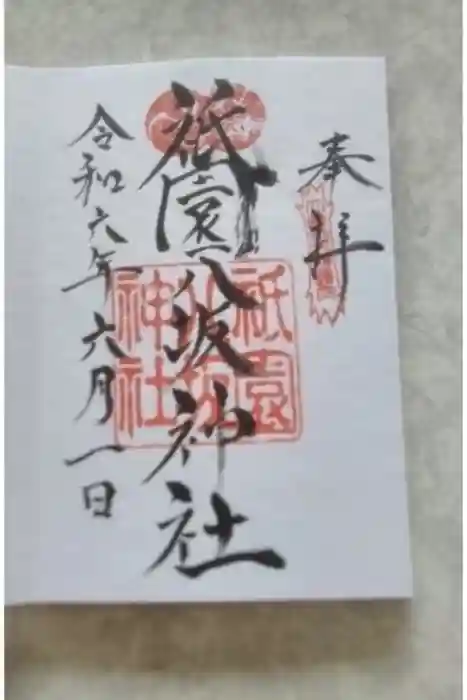 奉拝
祇園八坂神社
令和六年六月一日
祇園
八坂
神社